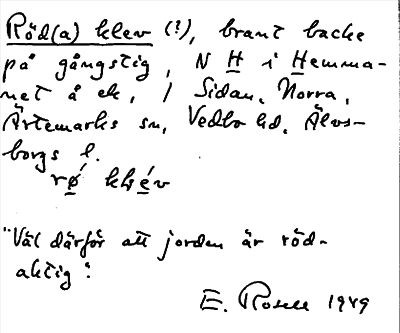 Röd(a) klev (?), brant backe
på gångstig, N H i Hemma-
net å ek, / Sidan, Norra,
Ärtemarks sn, Vedbo hd, Älvs-
borgs l.
rǿ klév
"Väl därför att jorden är röd-
aktig".
E. Rosell 1949